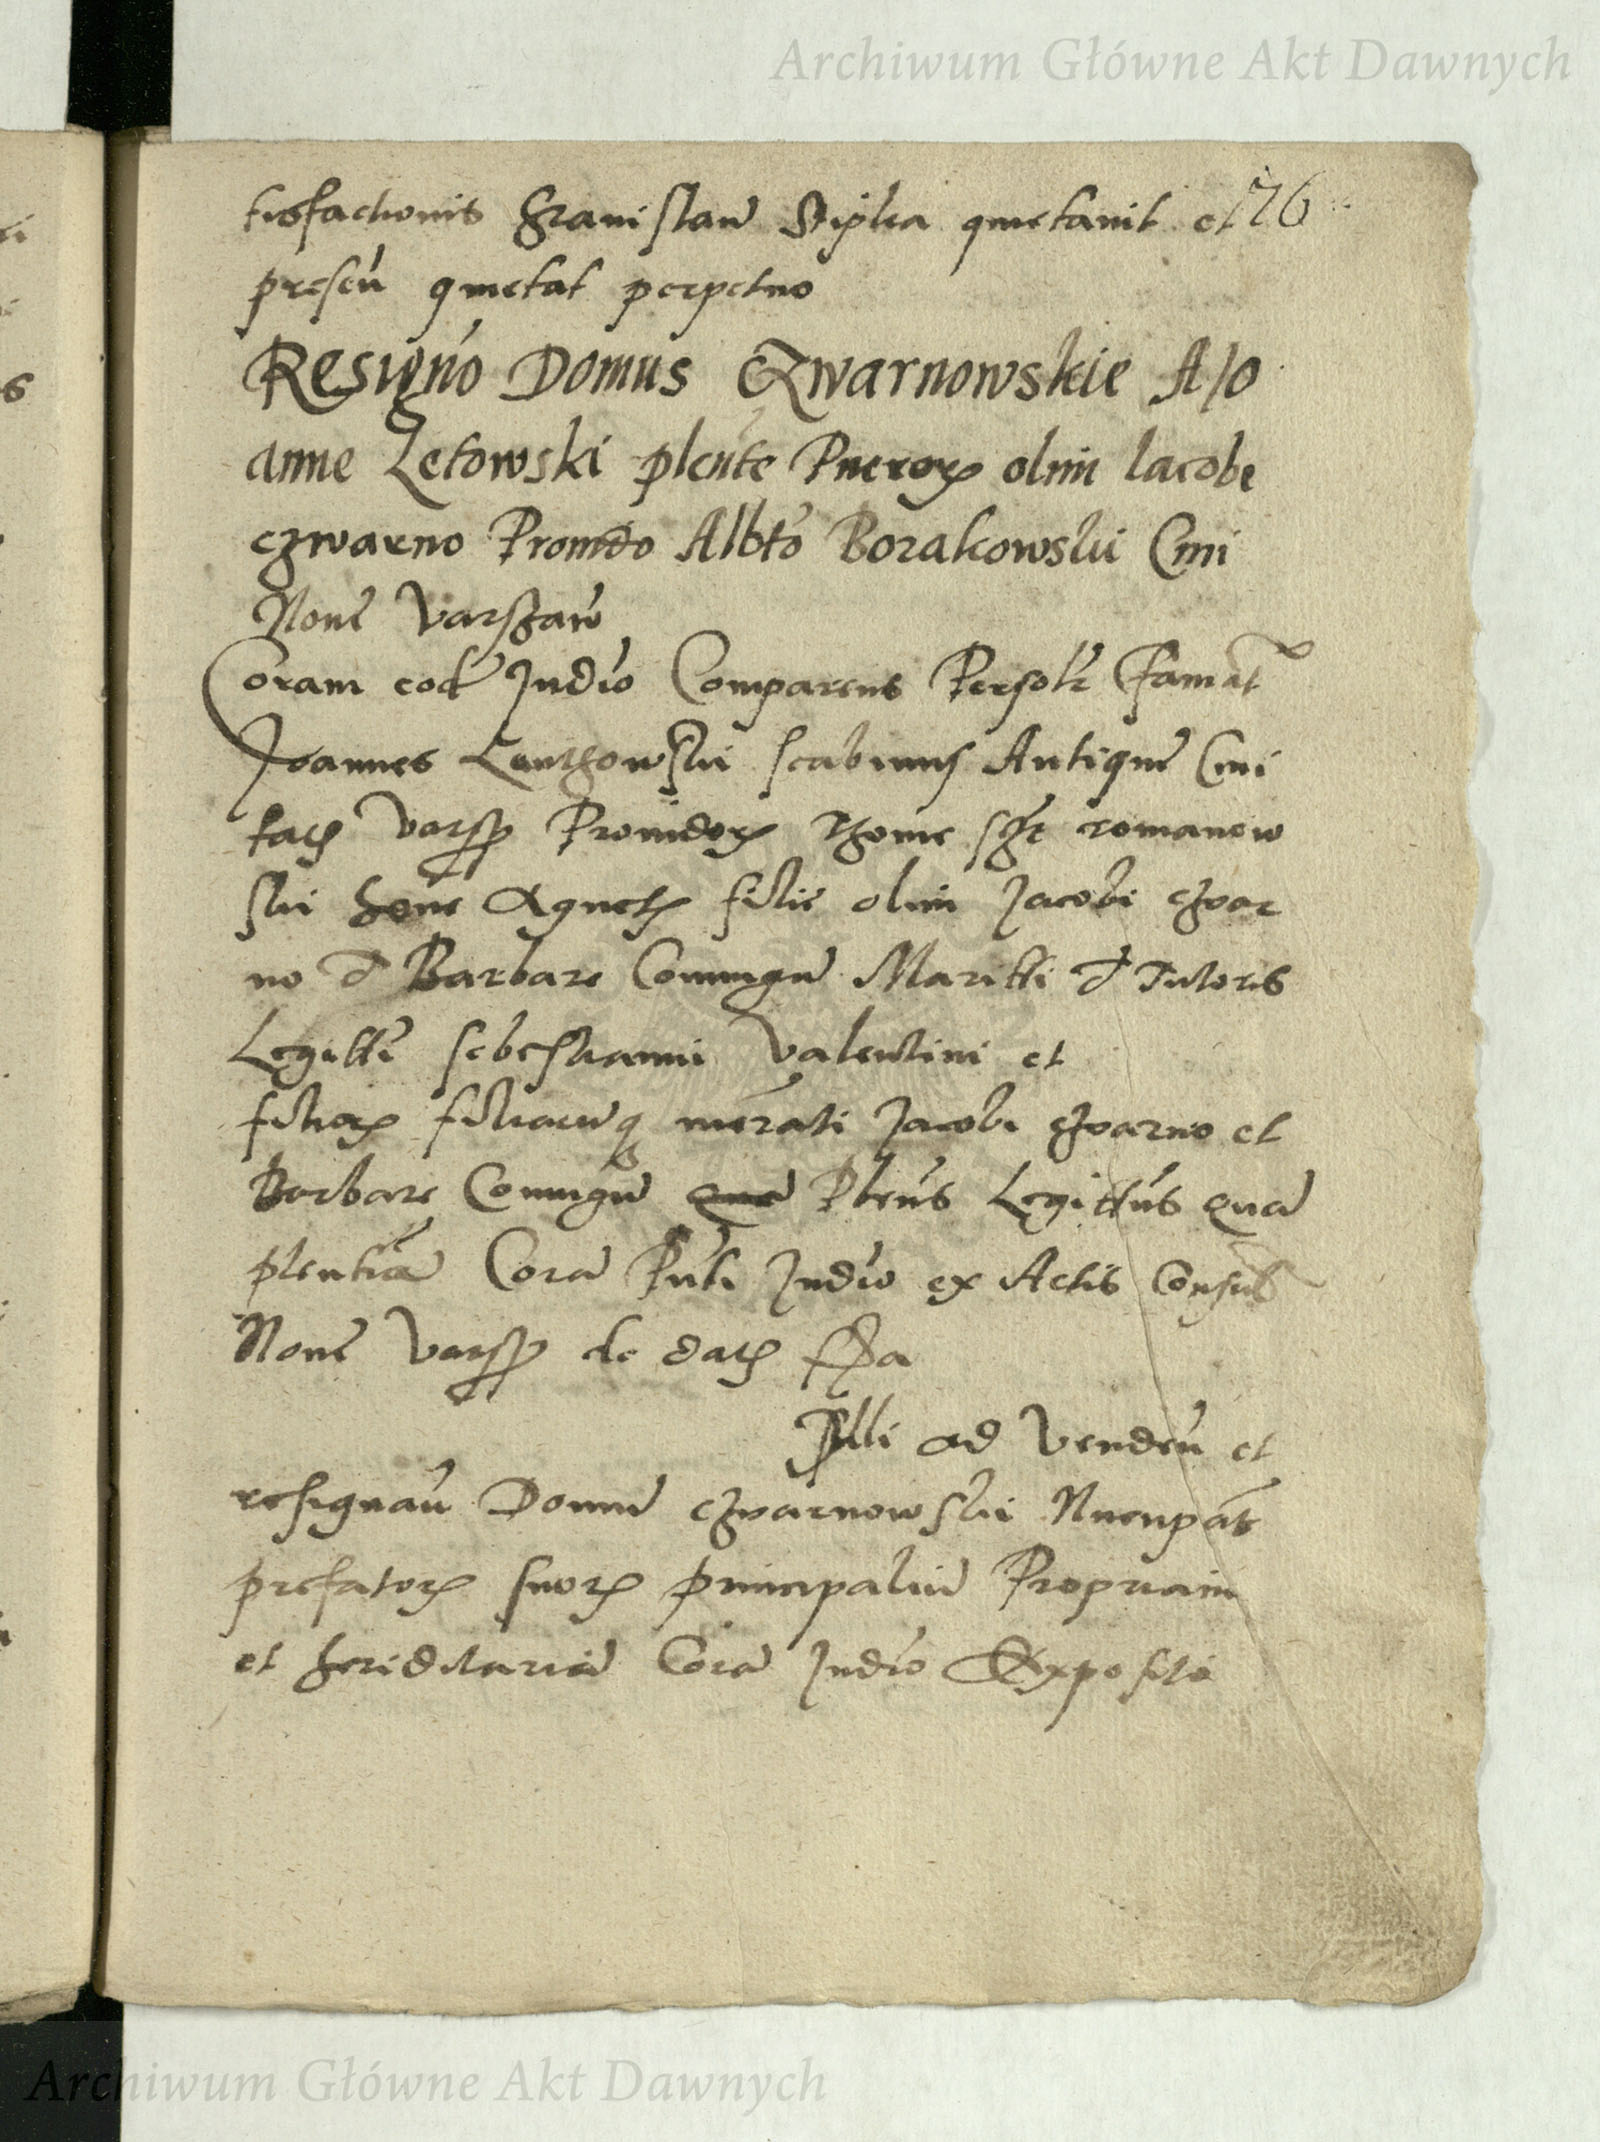 Archiwum Główne Akt Dawnych
tisfactionis Stanislaũ quietavit et 76
preseñ quietat perpetuo
Resigño Domus Czwarnowskie A Jo
anne Letowski pleñte Pueroꝝ olim Iacobi
czwarno Provido Albto Borakowski Civi
Nove Varszaw̃
Coram eod̃ Judio Comparens Persolr̃ Famat̃
Joannes scabinus Antique Civi
tatis Varsꝫ Providoꝝ romanow
ski Agnetis filie olim Jacobi czwar
no & Barbare Coniugũ Maritti & Tutoris
Legitti͂ Sebestianni Valentini et
filioꝝ filiarumqꝫ mẽrati Jacobi czwarno et
Barbare Coniugũ Pleñs Legittus̃ Qua
plentiã Corã Puti Judio ex Actis Consul̃
Nove Varsꝫ de datis
ad Vendeñ et
resignañ Domũ czwarnowski Nuncpat̃
prefatoꝝ suoꝝ principaliũ Propriam
et hereditariã Corã Judio Expositi
Archiwum Główne Akt Dawnych